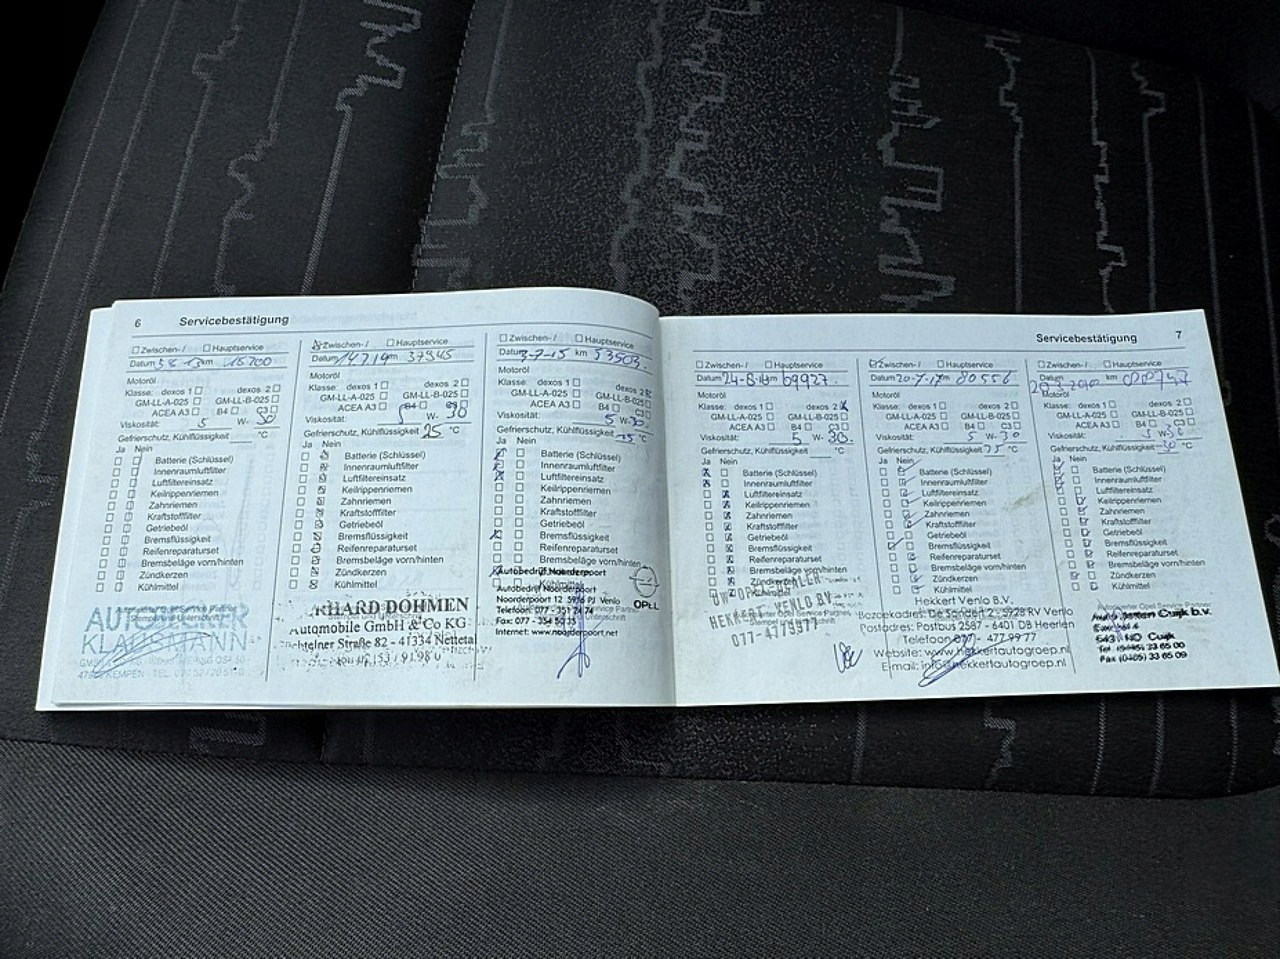 6 Servicebestätigung
☐ Zwischen- / ☐ Hauptservice
Datum 13 km 15700
Motoröl
Klasse: dexos 1 ☐ dexos 2 ☐
GM-LL-A-025 ☐ GM-LL-B-025 ☐
ACEA A3 ☐ B4 ☐ C3 ☐
Viskosität: 5 W- 30
Gefrierschutz, Kühlflüssigkeit °C
Ja Nein
Batterie (Schlüssel)
Innenraumluftfilter
Luftfiltereinsatz
Keilrippenriemen
Zahnriemen
Kraftstofffilter
Getriebeöl
Bremsflüssigkeit
Reifenreparaturset
Bremsbeläge vorn/hinten
Zündkerzen
Kühlmittel
KLAUSMANN
☒ Zwischen- / ☐ Hauptservice
Datum 14.7.14 km 37945
Motoröl
Klasse: dexos 1 ☐ dexos 2 ☐
GM-LL-A-025 ☐ GM-LL-B-025 ☐
ACEA A3 ☐ B4 C3
Viskosität: 5 W- 30
Gefrierschutz, Kühlflüssigkeit 25 °C
Ja Nein
Batterie (Schlüssel)
Innenraumluftfilter
Luftfiltereinsatz
Keilrippenriemen
Zahnriemen
Kraftstofffilter
Getriebeöl
Bremsflüssigkeit
Reifenreparaturset
Bremsbeläge vorn/hinten
Zündkerzen
Kühlmittel
DOHMEN
Automobile GmbH & Co KG
Straße 82 - 41334 Nettetal
☐ Zwischen- / ☐ Hauptservice
Datum 3-7-15 km 53503
Motoröl
Klasse: dexos 1 ☐ dexos 2 ☒
GM-LL-A-025 ☐ GM-LL-B-025 ☐
ACEA A3 ☐ B4 ☐ C3 ☐
Viskosität: 5 W- 30
Gefrierschutz, Kühlflüssigkeit °C
Ja Nein
Batterie (Schlüssel)
Innenraumluftfilter
Luftfiltereinsatz
Keilrippenriemen
Zahnriemen
Kraftstofffilter
Getriebeöl
Bremsflüssigkeit
Reifenreparaturset
Bremsbeläge vorn/hinten
Zündkerzen
Kühlmittel
Autobedrijf Noorderpoort
Noorderpoort 12 5916 PJ Venlo
Telefoon: 077 - 351 74 74
Fax: 077 - 354 50 35
Internet: www.noorderpoort.net
OPEL
Servicebestätigung 7
☐ Zwischen- / ☐ Hauptservice
Datum 24-8-16 km 69927
Motoröl
Klasse: dexos 1 ☐ dexos 2 ☒
GM-LL-A-025 ☐ GM-LL-B-025 ☐
ACEA A3 ☐ B4 ☐ C3 ☐
Viskosität: 5 W- 30
Gefrierschutz, Kühlflüssigkeit °C
Ja Nein
Batterie (Schlüssel)
Innenraumluftfilter
Luftfiltereinsatz
Keilrippenriemen
Zahnriemen
Kraftstofffilter
Getriebeöl
Bremsflüssigkeit
Reifenreparaturset
Bremsbeläge vorn/hinten
Zündkerzen
UW OPEL DEALER
HEKKERT VENLO BV
077-4779977
☒ Zwischen- / ☐ Hauptservice
Datum 20-7-17 km 80556
Motoröl
Klasse: dexos 1 ☐ dexos 2 ☐
GM-LL-A-025 ☐ GM-LL-B-025 ☐
ACEA A3 ☐ B4 ☐ C3 ☐
Viskosität: 5 W- 30
Gefrierschutz, Kühlflüssigkeit °C
Ja Nein
Batterie (Schlüssel)
Innenraumluftfilter
Luftfiltereinsatz
Keilrippenriemen
Zahnriemen
Kraftstofffilter
Getriebeöl
Bremsflüssigkeit
Reifenreparaturset
Bremsbeläge vorn/hinten
Zündkerzen
Kühlmittel
Hekkert Venlo B.V.
Bezoekadres: De Sondert 2 - 5928 RV Venlo
Postadres: Postbus 2587 - 6401 DB Heerlen
Telefoon 077 - 477 99 77
Website: www.hekkertautogroep.nl
E-mail: info@hekkertautogroep.nl
☐ Zwischen- / ☐ Hauptservice
Datum km
Motoröl
Klasse: dexos 1 ☐ dexos 2 ☐
GM-LL-A-025 ☐ GM-LL-B-025 ☐
ACEA A3 ☐ B4 ☐ C3 ☐
Viskosität: 5 W 30
Gefrierschutz, Kühlflüssigkeit °C
Ja Nein
Batterie (Schlüssel)
Innenraumluftfilter
Luftfiltereinsatz
Keilrippenriemen
Zahnriemen
Kraftstofffilter
Getriebeöl
Bremsflüssigkeit
Reifenreparaturset
Bremsbeläge vorn/hinten
Zündkerzen
Kühlmittel
Cuijk b.v.
Cuijk
33 65 00
33 65 09